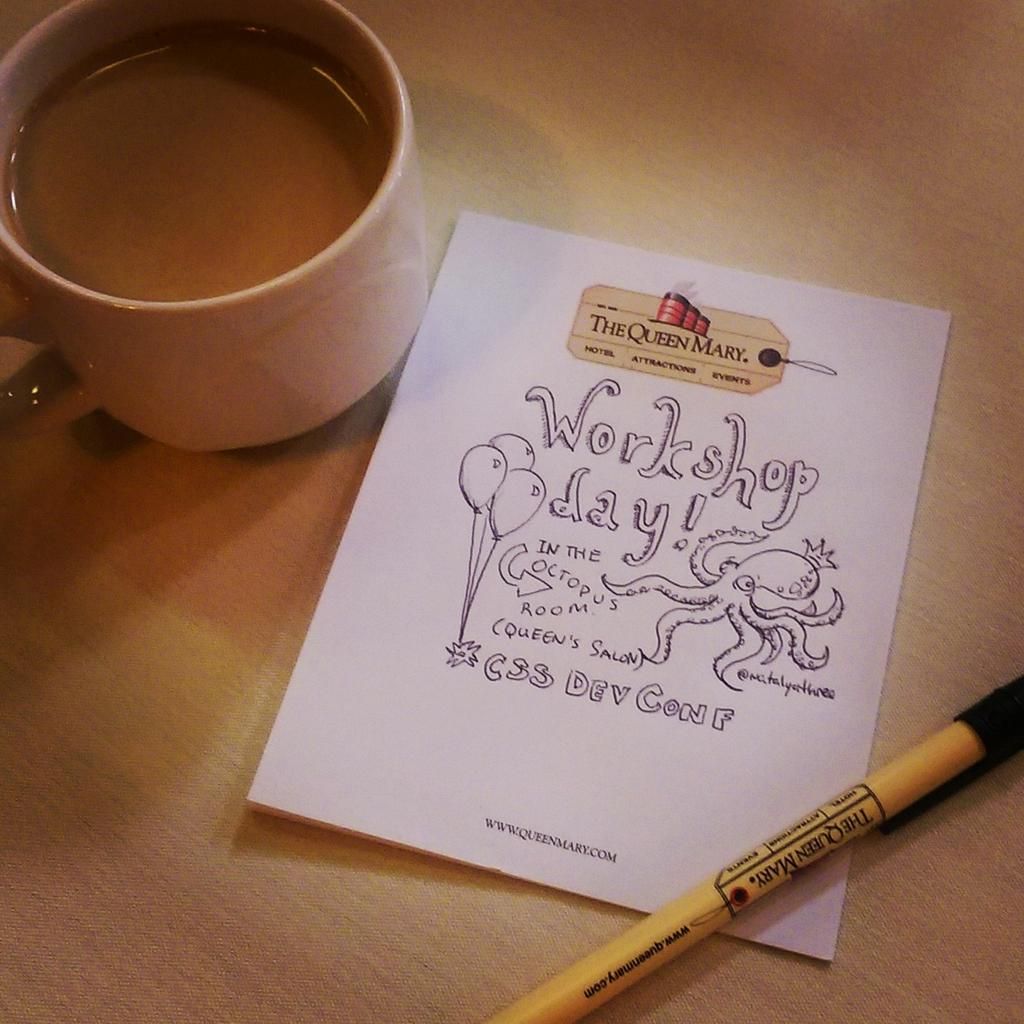 THE QUEEN MARY.
HOTEL ATTRACTIONS EVENTS
Workshop
day!
IN THE
OCTOPUS
ROOM.
(QUEEN'S SALON)
# CSS DEV CONF
@natalyathree
WWW.QUEENMARY.COM
THE QUEEN MARY.
HOTEL ATTRACTIONS EVENTS
www.queenmary.com